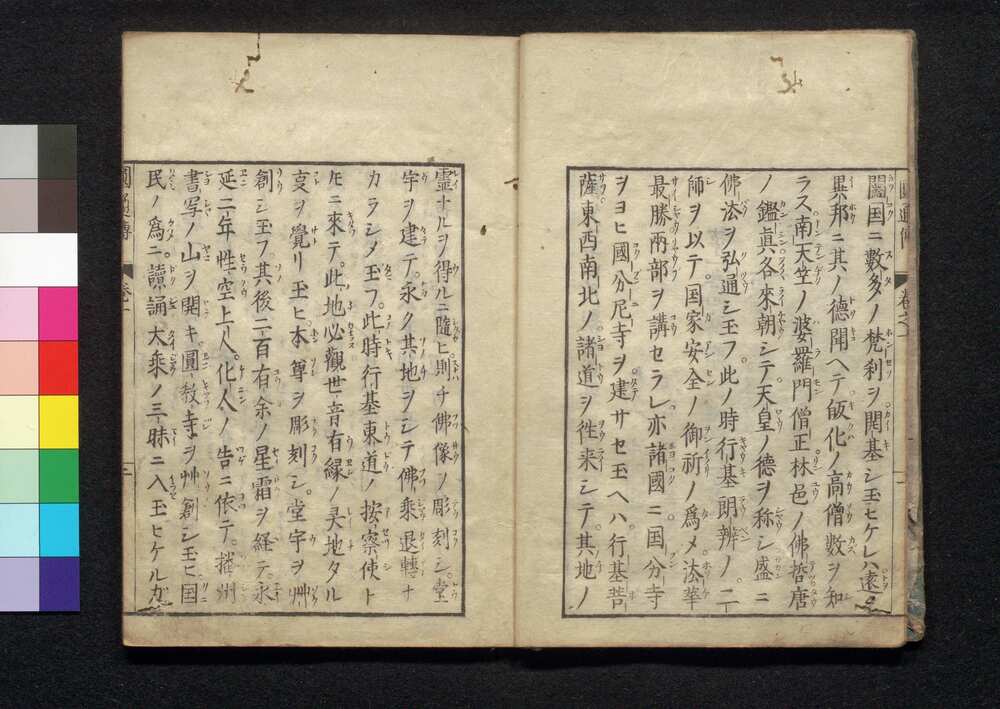 闔国ニ數多ノ梵刹ヲ開基シ玉ヒケレハ遠ク
異邦ニ其ノ德聞ヘテ皈化ノ高僧數ヲ知
ラス南天竺ノ婆羅門僧正林邑ノ佛哲唐
ノ鑑眞各來朝シテ天皇ノ德ヲ称シ盛ニ
佛法ヲ弘通シ玉フ此ノ時行基朗辨ノ二
師ヲ以テ国家安全ノ御祈ノ爲メ法華
最勝兩部ヲ講セラレ亦諸國ニ国分寺
ヲヨヒ國分尼寺ヲ建サセ玉ヘハ行基菩
薩東西南北ノ諸道ヲ徃来シテ其地ノ
圓通傳 卷之一
靈ナルヲ得ルニ隨ヒ則チ佛像ノ彫刻シ堂
宇ヲ建テ永ク其地ヲシテ佛乘退轉ナ
カラシメ玉フ此時行基東道ノ按察使ト
モニ來テ此地必觀世音有縁ノ灵地タル
叓ヲ覺リ玉ヒ本尊ヲ彫刻シ堂宇ヲ艸
創シ玉フ其後二百有余ノ星霜ヲ経テ永
延二年性空上人化人ノ告ニ依テ播州
書写ノ山ヲ開キ圓教寺ヲ艸創シ玉ヒ国
民ノ爲ニ讀誦大乘ノ三昧ニ入玉ヒケルカ
圓通傳 卷一